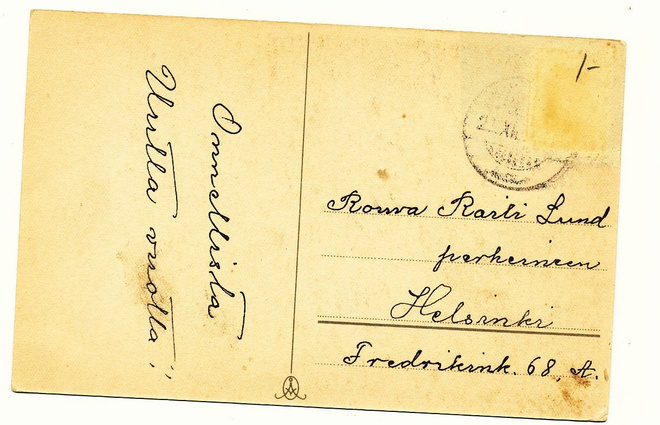 Onnellista
Uutta vuotta!"
1/-
XII
Rouva Raili Lund
perheineen
Helsinki
Fredrikink. 68, A.